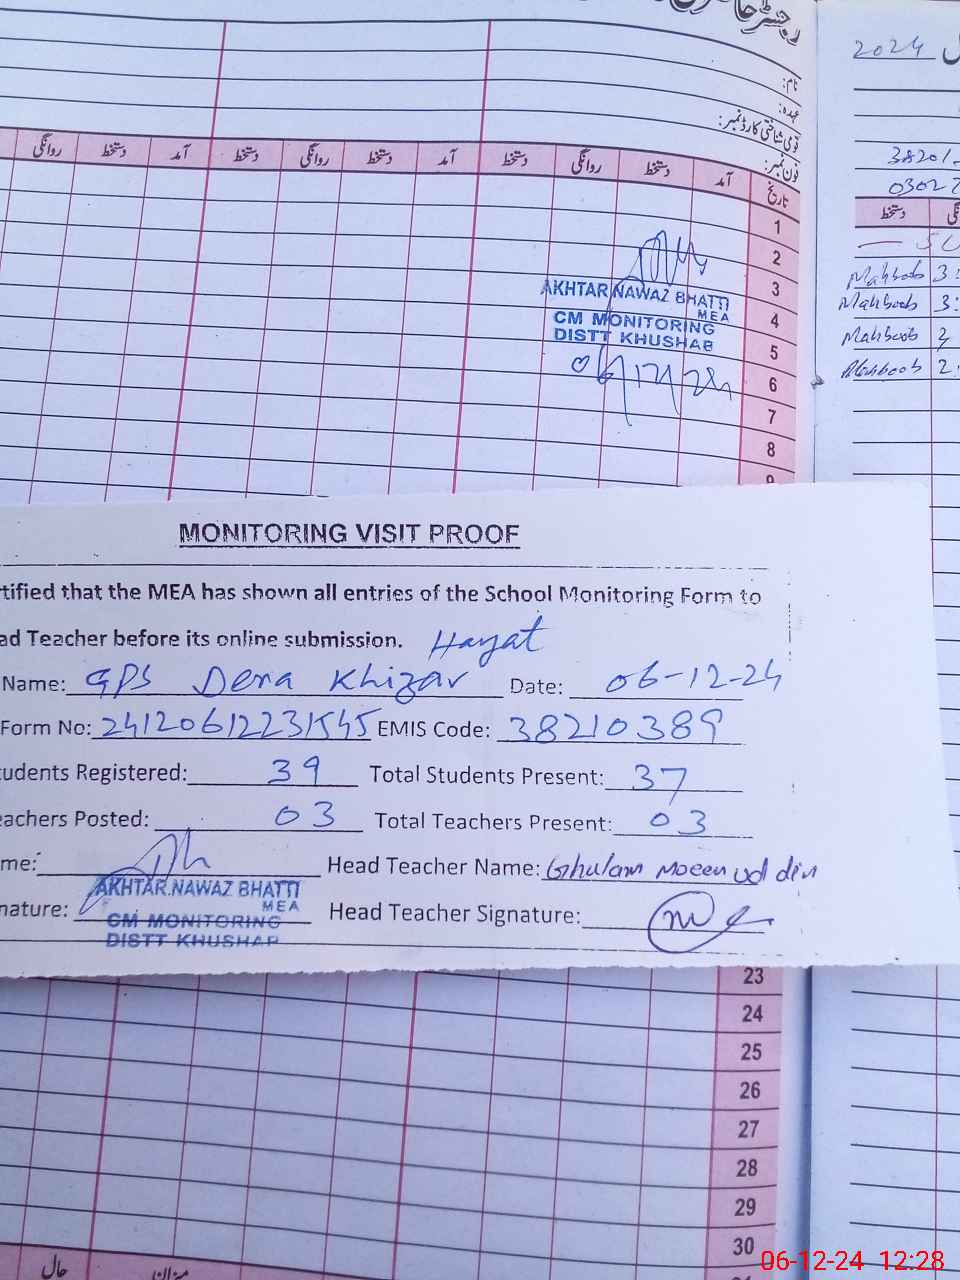 رجسٹر حاضری
2024
نام:
عہدہ:
قومی شناختی کارڈ نمبر:
فون نمبر:
38201-
0302
تاریخ آمد دستخط روانگی دستخط آمد دستخط روانگی دستخط آمد دستخط روانگی
دستخط
1
2
3
4
5
6
7
8
9
AKHTAR NAWAZ BHATTI
MEA
CM MONITORING
DISTT KHUSHAB
06/12/24
SU
Mahboob 3:
Mahboob 3:
Mahboob 2,
Mahboob 2.
MONITORING VISIT PROOF
tified that the MEA has shown all entries of the School Monitoring Form to
ad Teacher before its online submission. Hayat
Name: GPS Dera Khizar Date: 06-12-24
Form No: 24120612231545 EMIS Code: 38210389
udents Registered: 39 Total Students Present: 37
eachers Posted: 03 Total Teachers Present: 03
me: Head Teacher Name: Ghulam Moeen ud din
AKHTAR NAWAZ BHATTI
MEA
nature: Head Teacher Signature:
CM MONITORING
DISTT KHUSHAB
23
24
25
26
27
28
29
30
میزان حال
06-12-24 12:28